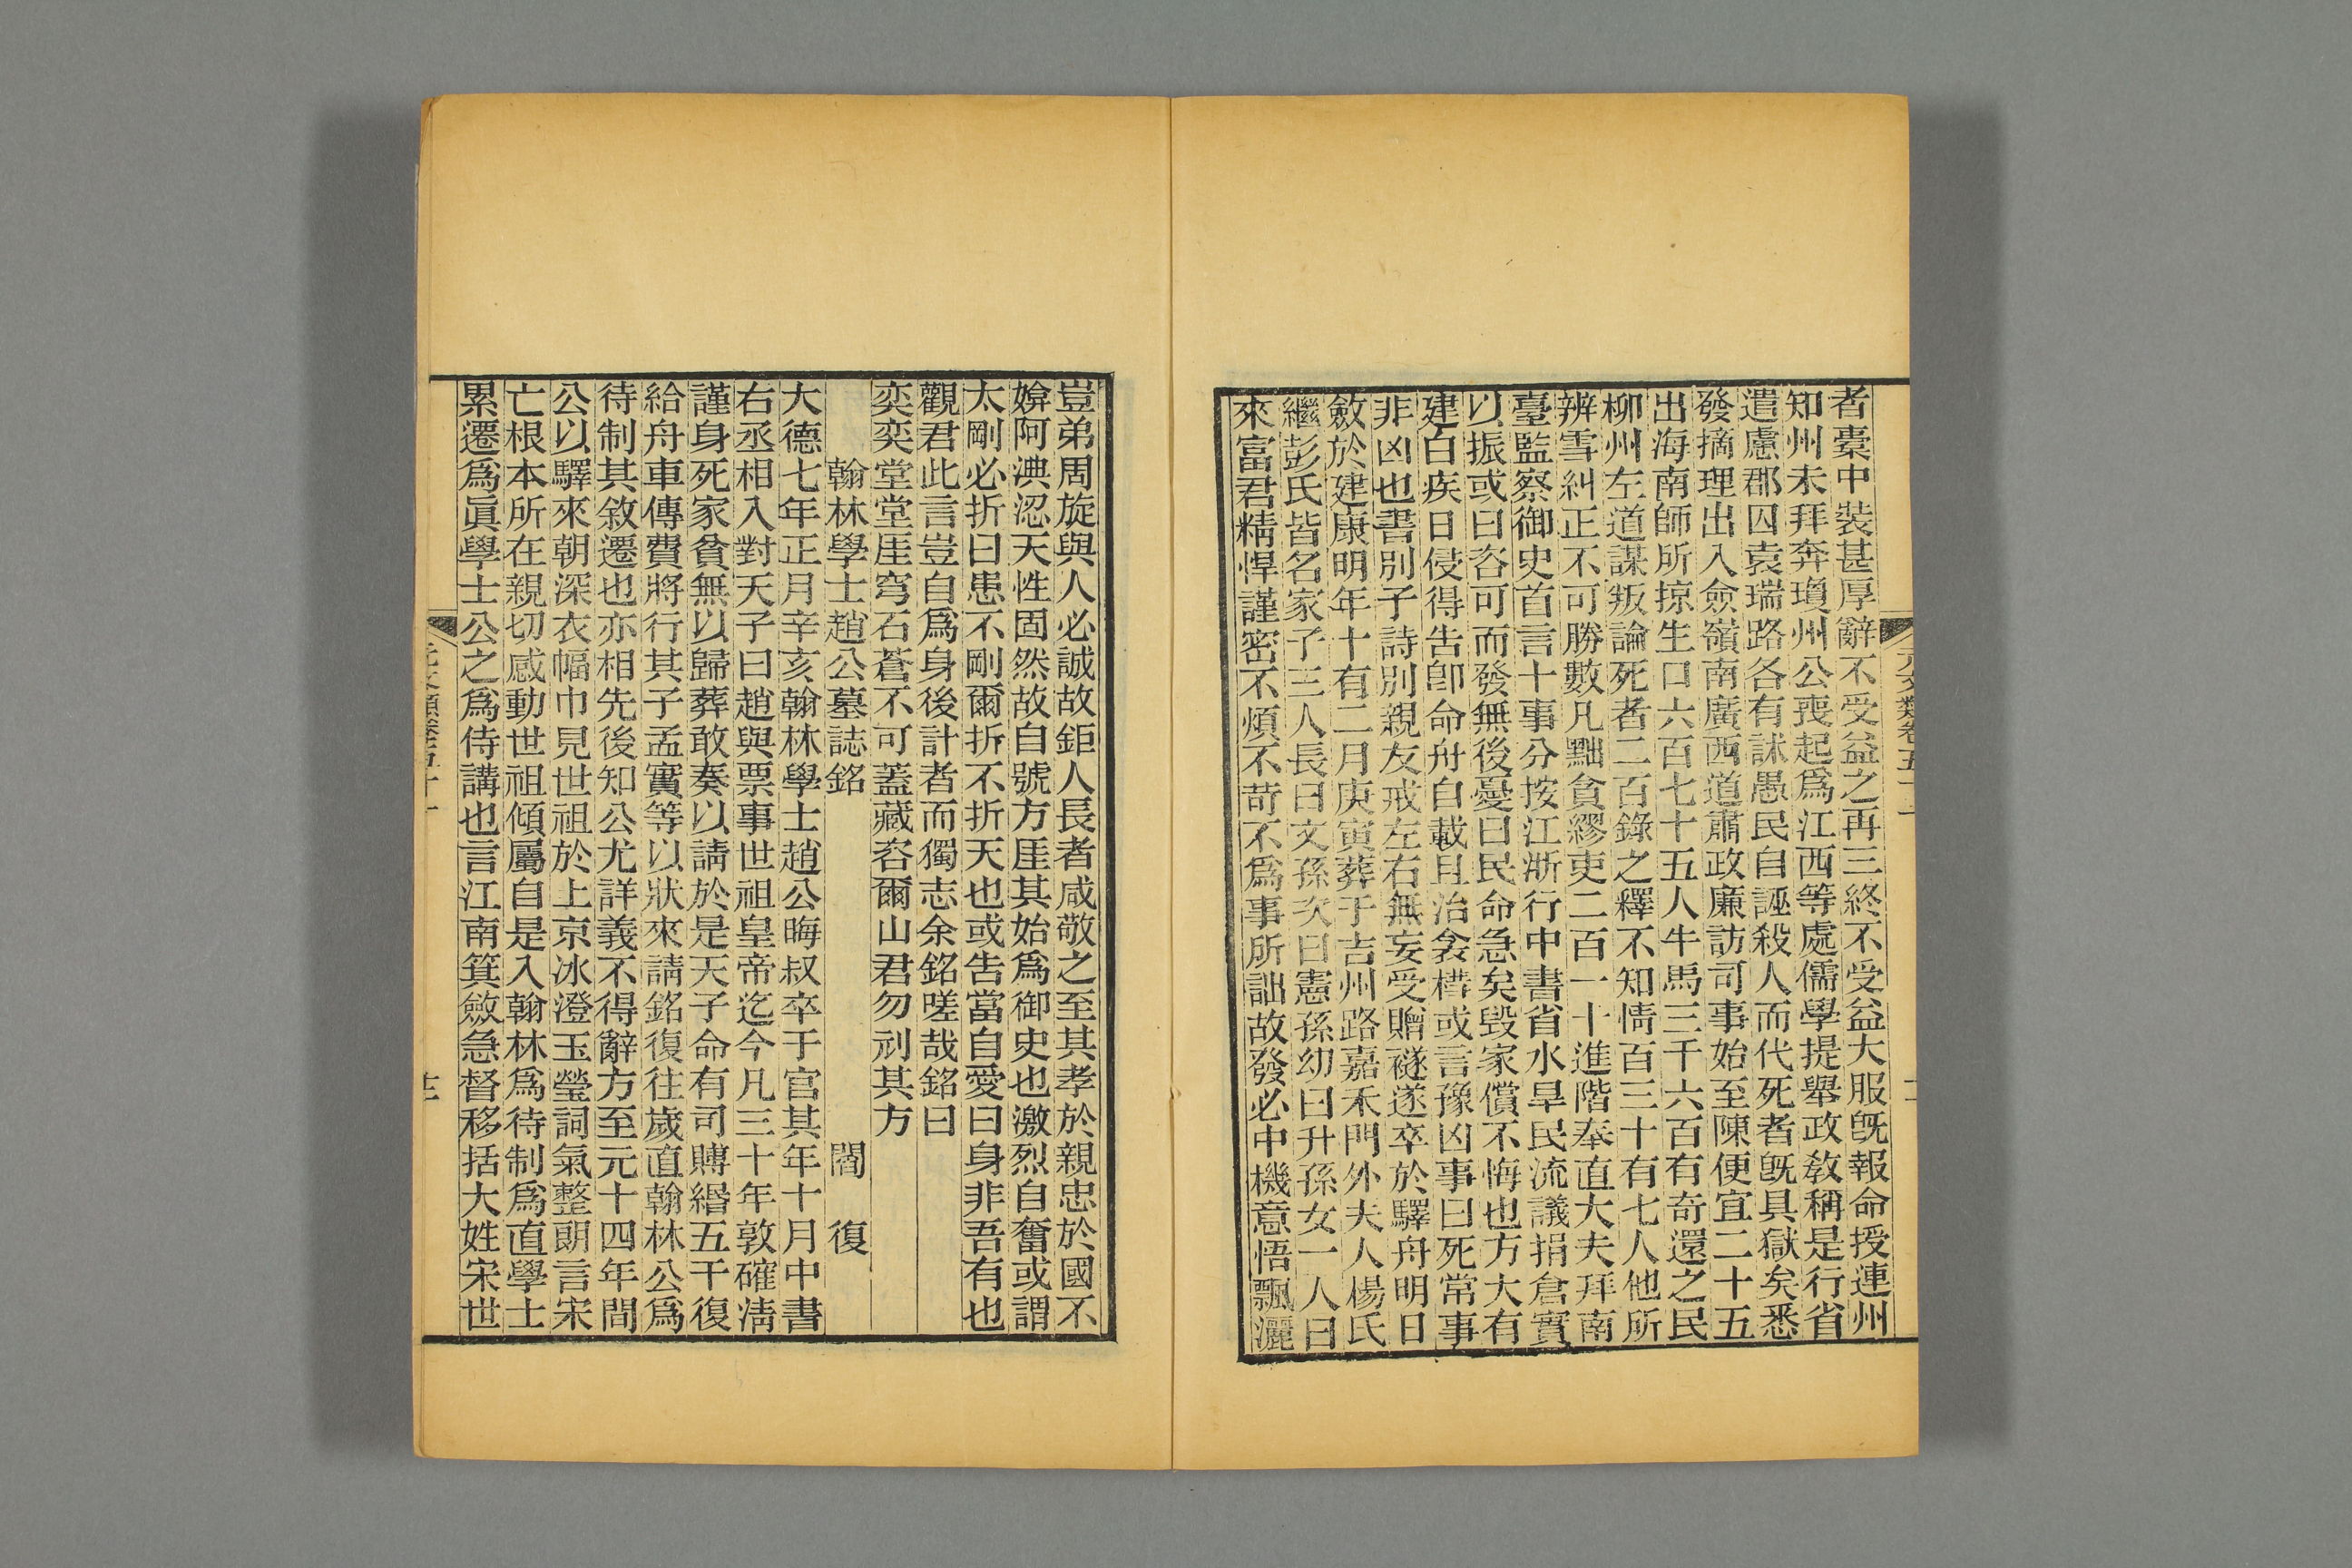 者橐中裝甚厚辭不受益之再三終不受益大服旣報命授連州
知州未拜奔瓊州公喪起爲江西等處儒學提舉政敎稱是行省
遣慮郡囚袁瑞路各有訹愚民自誣殺人而代死者旣具獄矣悉
發摘理出入僉嶺南廣西道肅政廉訪司事始至陳便宜二十五
出海南師所掠生口六百七十五人牛馬三千六百有奇還之民
柳州左道謀叛論死者二百錄之釋不知情百三十有七人他所
辨雪糾正不可勝數凡黜貪繆吏二百一十進階奉直大夫拜南
臺監察御史首言十事分按江浙行中書省水旱民流議捐倉實
以振或曰咨可而發無後憂曰民命急矣毀家償不悔也方大有
建白疾日侵得告卽命舟自載且治衾槥或言豫凶事曰死常事
非凶也書別子詩別親友戒左右無妄受贈襚遂卒於驛舟明日
斂於建康明年十有二月庚寅葬于吉州路嘉禾門外夫人楊氏
繼彭氏皆名家子三人長曰文孫次曰憲孫幼曰升孫女一人曰
來富君精悍謹密不煩不苛不爲事所詘故發必中機意悟飄灑
豈弟周旋與人必誠故鉅人長者咸敬之至其孝於親忠於國不
媕阿淟涊天性固然故自號方厓其始爲御史也激烈自奮或謂
太剛必折曰患不剛爾折不折天也或告當自愛曰身非吾有也
觀君此言豈自爲身後計者而獨志余銘嗟哉銘曰
奕奕堂堂厓穹石蒼不可蓋藏咨爾山君勿刓其方
翰林學士趙公墓誌銘　閻　復
大德七年正月辛亥翰林學士趙公晦叔卒于官其年十月中書
右丞相入對天子曰趙與票事世祖皇帝迄今凡三十年敦確淸
謹身死家貧無以歸葬敢奏以請於是天子命有司賻緡五千復
給舟車傳費將行其子孟實等以狀來請銘復往歲直翰林公爲
待制其敘遷也亦相先後知公尤詳義不得辭方至元十四年間
公以驛來朝深衣幅巾見世祖於上京冰澄玉瑩詞氣整朗言宋
亡根本所在親切感動世祖傾屬自是入翰林爲待制爲直學士
累遷爲眞學士公之爲侍講也言江南箕斂急督移括大姓宋世